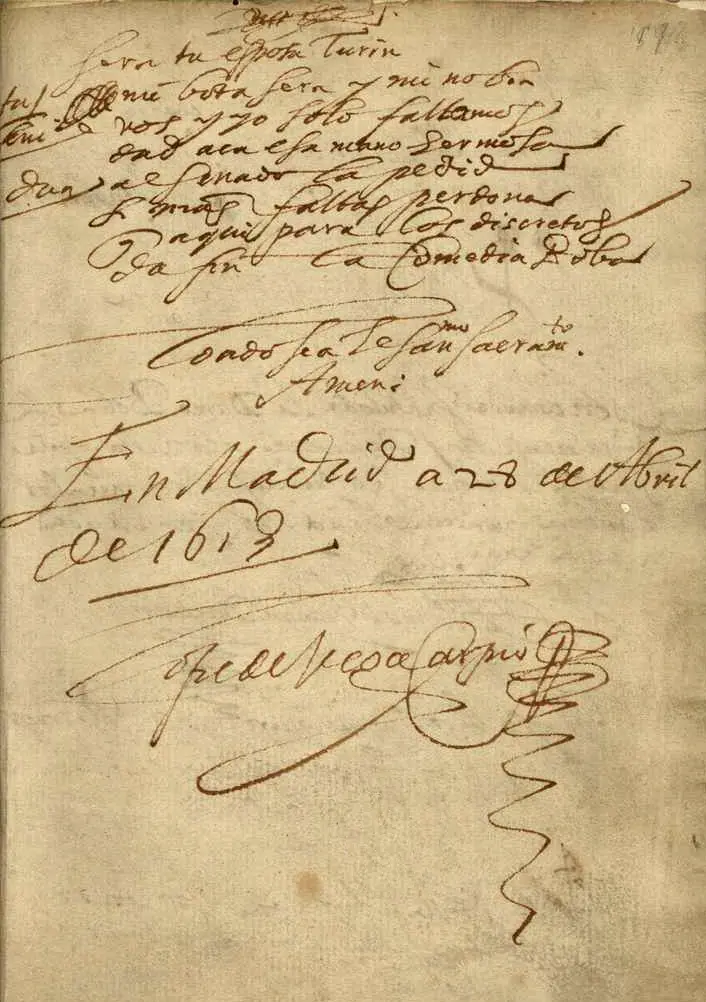 sera tu esposa Turin
mi bota sera y mi novia
vos y yo solo faltamos
dad aca esa mano hermosa
al senado la pedid
si nuestras faltas perdona
q aqui para los discretos
da fin la Comedia Boba
Loado sea el Sanmo Sacramto.
Amen:
En Madrid a 28 de Abril
de 1613
Lope de Vega Carpio